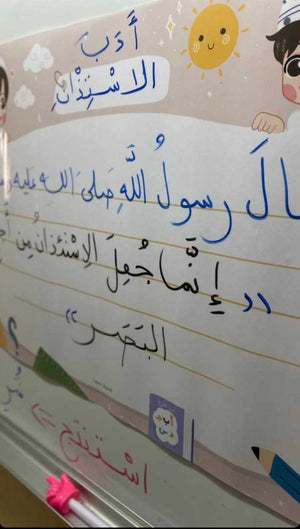 أَدَبَ
الاسْتِئْذَانِ
قالَ رسولُ اللَّهِ صَلى الله عليه
" إِنَّمَا جُعِلَ الِاسْتِئْذَانُ مِن
البَصَر "
اسْتنتج